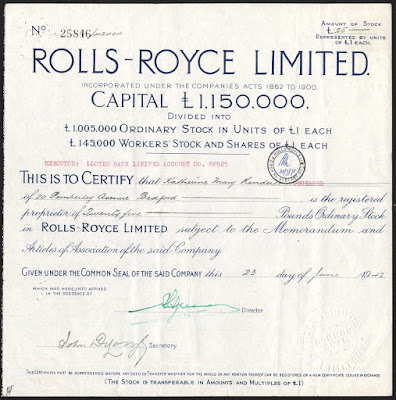 No 25846
AMOUNT OF STOCK
£25
REPRESENTED BY UNITS
OF £1 EACH.
ROLLS-ROYCE LIMITED.
INCORPORATED UNDER THE COMPANIES ACTS 1862 TO 1900.
CAPITAL £1,150,000,
DIVIDED INTO
£1,005,000 ORDINARY STOCK IN UNITS OF £1 EACH
£145,000 WORKERS' STOCK AND SHARES OF £1 EACH
EXECUTOR: LLOYDS BANK LIMITED ACCOUNT NO. 88925
THIS IS TO CERTIFY that Katherine Mary DECEASED
of 20 Pemberley Avenue Bedford is the registered
proprietor of Twenty five Pounds Ordinary Stock
in ROLLS-ROYCE LIMITED subject to the Memorandum and
Articles of Association of the said Company.
GIVEN UNDER THE COMMON SEAL OF THE SAID COMPANY this 23 day of June
WHICH WAS HEREUNTO AFFIXED
IN THE PRESENCE OF
Director
John Secretary
THIS CERTIFICATE MUST BE SURRENDERED BEFORE ANY DEED OF TRANSFER WHETHER FOR THE WHOLE OR ANY PORTION THEREOF CAN BE REGISTERED OR A NEW CERTIFICATE ISSUED IN EXCHANGE.
(THE STOCK IS TRANSFERABLE IN AMOUNTS AND MULTIPLES OF £1)